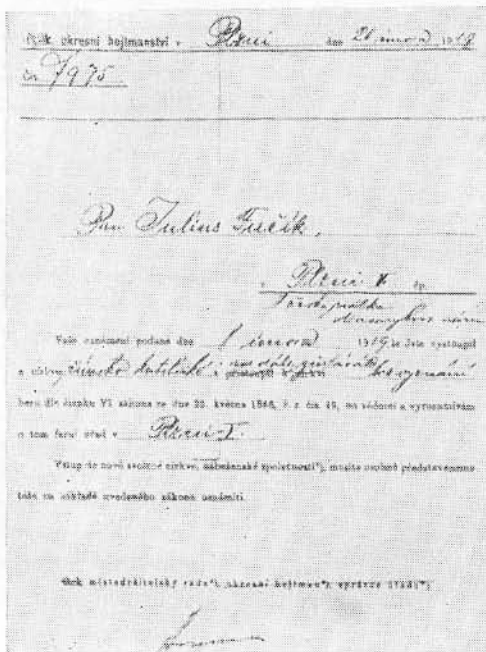 okresní hejtmanství v Plzni dne 21. února 1919
čís 7975.
Pan Julius Fučík,
v Plzni čp.
Vaše oznámení podané dne 1 února 1919 že jste vystoupil
z církve římsko katolické a bez vyznání
beru dle článku VI zákona ze dne 25. května 1868, ř. z. čís 49, na vědomí a vyrozumívám
o tom farní úřad v Plzni
Vstup do nově zvolené církve, náboženské společnosti*), musíte osobně představenému
této na základě uvedeného zákona oznámiti.
místodržitelský rada*), okresní hejtman*), správce úřadu*)